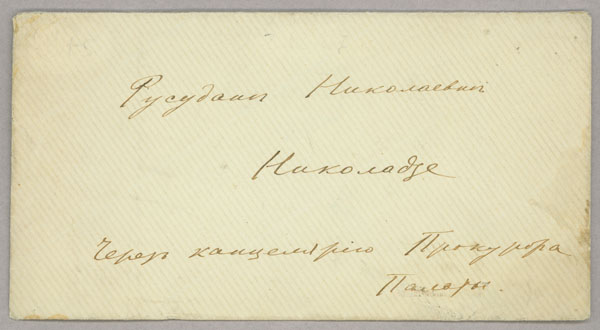 Русудани Николаевни
Николадзе
Черезъ канцелярію Прокурора
Палаты.